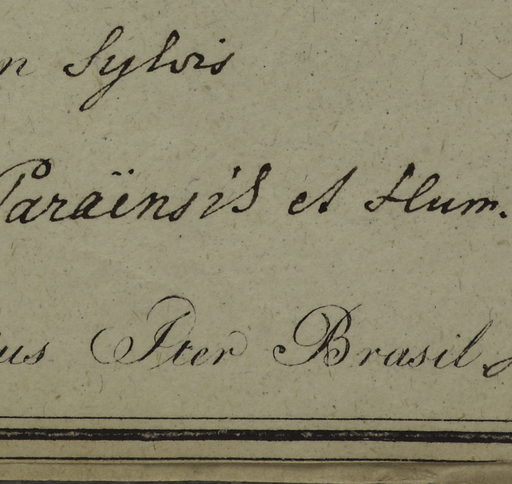 n Sylvis
Paraënsis et flum.
us Iter Brasil.